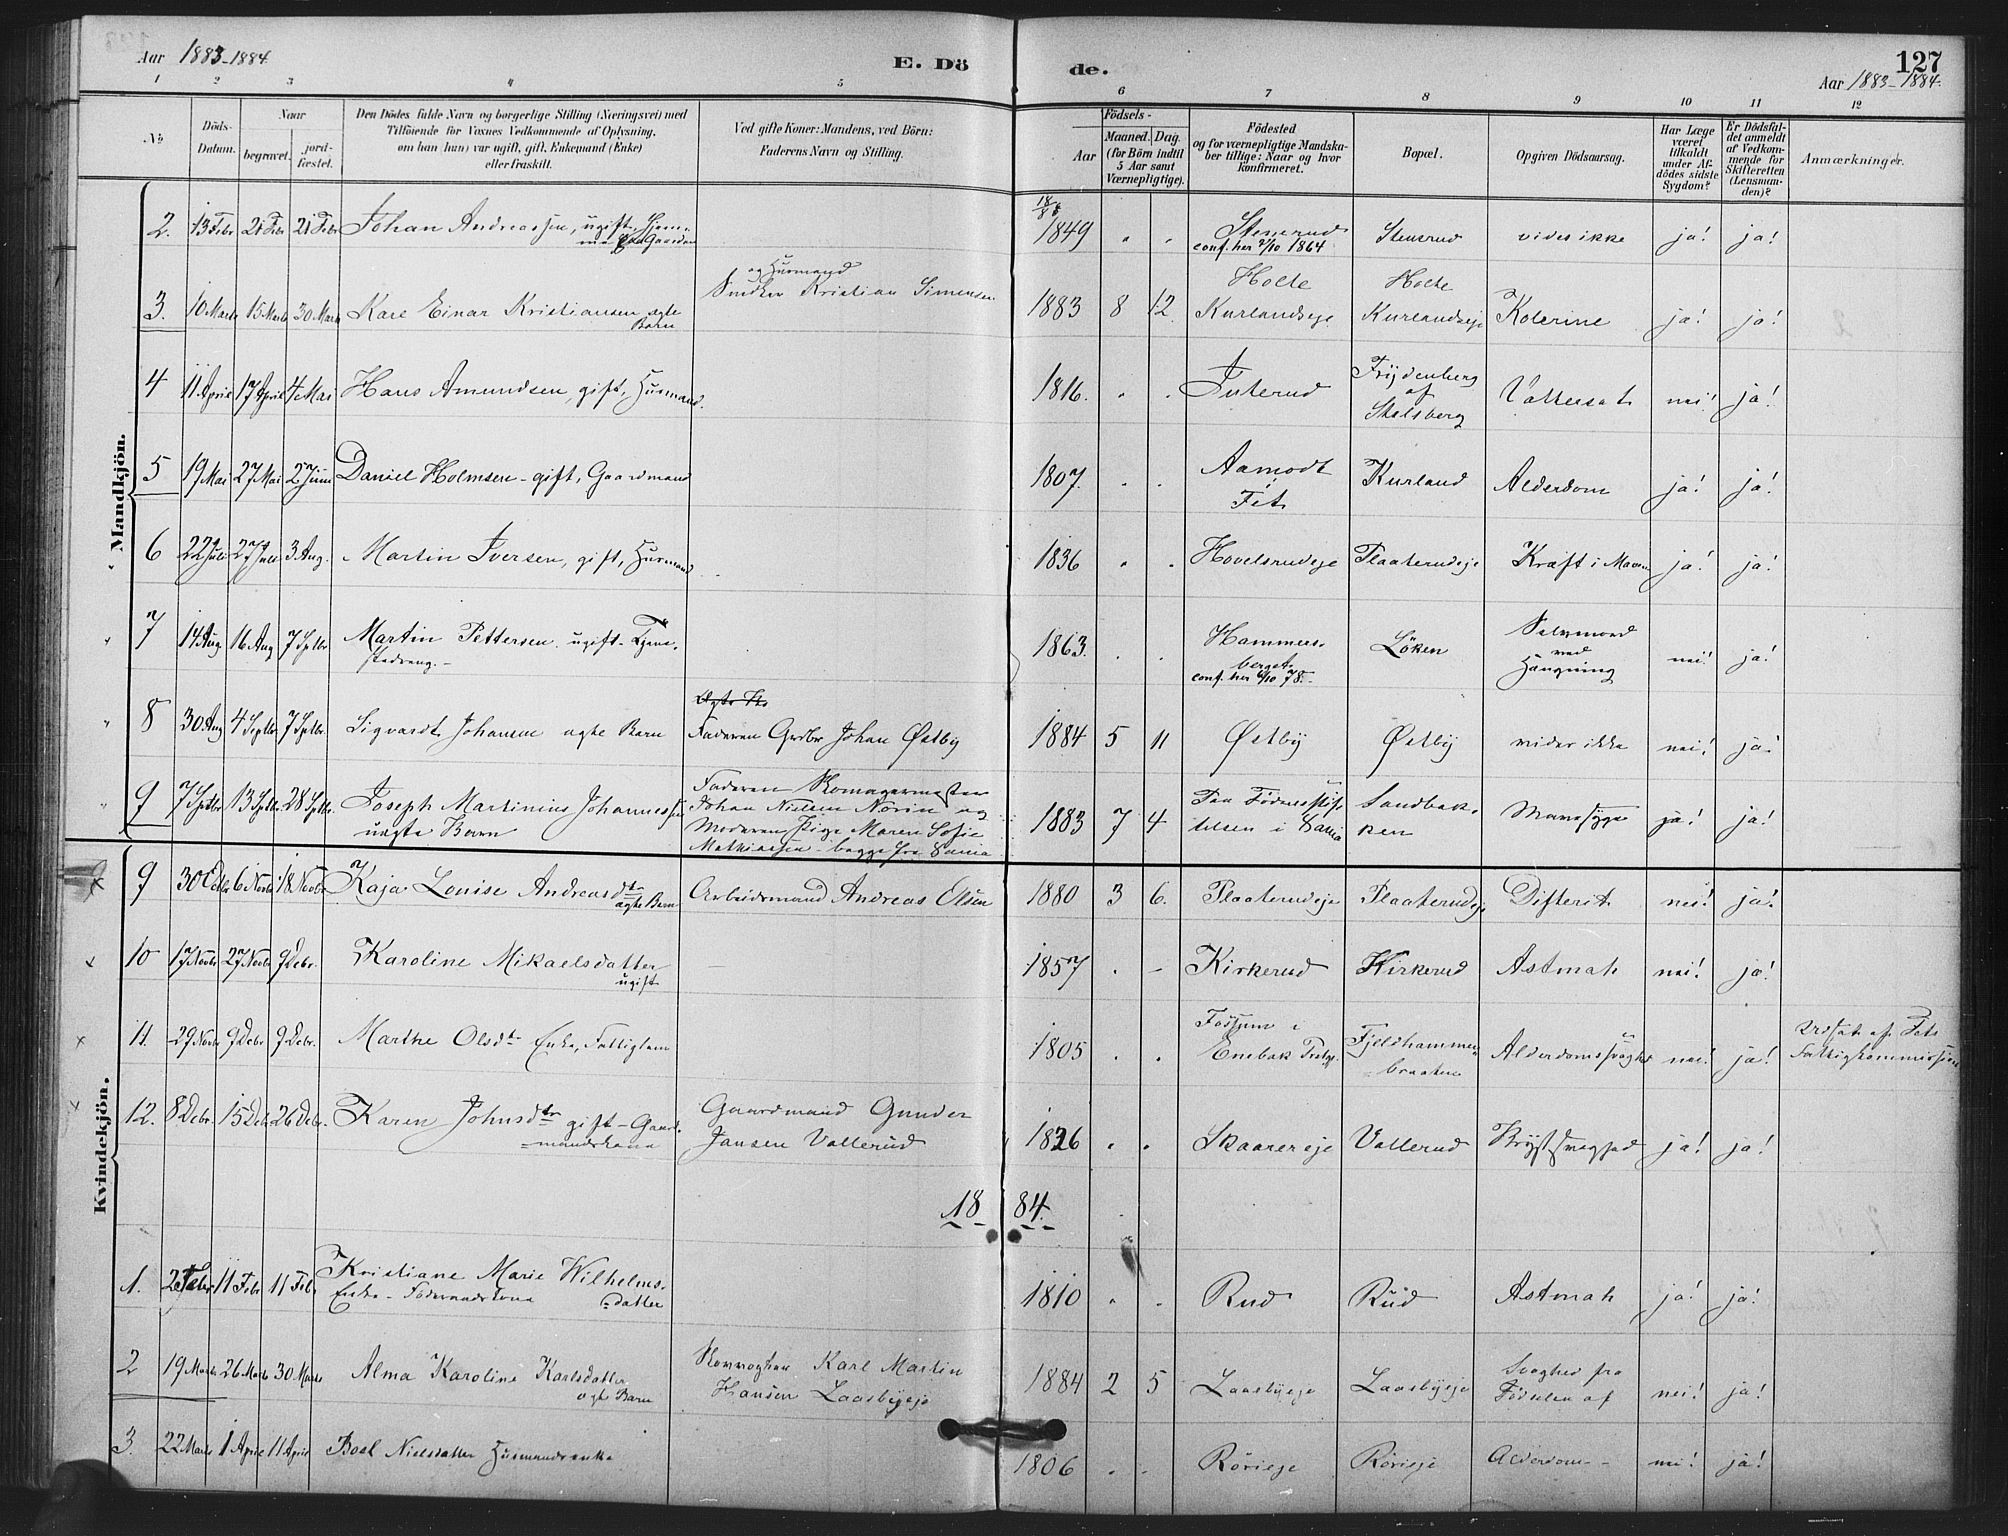 Aar 1883-1884
E. Dö de.
127
Aar 1883-1884.
1 2 3 4 5 6 7 8 9 10 11 12
No
Döds-
Datum.
Naar
begravet.
jord-
fæstet.
Den Dödes fulde Navn og borgerlige Stilling (Næringsvei) med
Tilföiende for Voxnes Vedkommende af Oplysning,
om han (hun) var ugift, gift, Enkemand (Enke)
eller fraskilt.
Ved gifte Koner: Mandens, ved Börn:
Faderens Navn og Stilling.
Födsels-
Aar
Maaned.
Dag.
(for Börn indtil
5 Aar samt
Værnepligtige).
Födested
og for værnepligtige Mandska-
ber tillige: Naar og hvor
konfirmeret.
Bopæl.
Opgiven Dödsaarsag.
Har Læge
været
tilkaldt
under Af-
dödes sidste
Sygdom?
Er Dödsfal-
det anmeldt
af Vedkom-
mende for
Skifteretten
(Lensman-
den)?
Anmærkninger.
Mandkjön.
2. 13 Febr 21 Febr 21 Febr Johan Andreassen, ugift, Hjem-
me paa Gaarden
18/8 1849 Stensrud
conf. her 2/10 1864
Stensrud vides ikke ja! ja!
3. 10 Marts 15 Marts 30 Marts Kare Einar Kristiansen ægte
Barn
og Husmand
Snedker Kristian Simensen
1883 8 12. Holte
Kurlandseje
Holte
Kurlandseje
Kolerine ja! ja!
4 11 April 17 April 4 Mai Hans Amundsen, gift, Husmand.
1816. Juterud
Frydenberg
af
Skelsberg
Vattersot nei! ja!
5 19 Mai 27 Mai 2 Juni Daniel Holmsen - gift, Gaardmand
1807. Aamodt
Fet
Kurland Alderdom ja! ja!
6 22 Juli 27 Juli 3 Aug. Martin Iversen, gift, Husmand
1836 Hovelsrudeje Plaaterudeje Kræft i Maven ja! ja!
7 14 Aug 16 Aug 7 Sptbr Martin Pettersen ugift - Tjene-
stedreng. -
1863. Hammers-
berget.
conf. her 6/10 78. -
Löken
Selvmord
ved
Hængning
nei! ja!
8 30 Aug 4 Septbr 7 Sptbr. Sigvardt Johansen ægte Barn
Faderen Grdbr Johan Østby
1884 5 11 Østby Østby vides ikke nei! ja!
9 7 Sptbr 13 Sptbr. 28 Sptbr. Joseph Martinius Johannessen
uægte Barn
Faderen Skomagermester
Johan Nielsen Norin og
Moderen Pige Maren Sofie
Mathiassen - begge fra
1883 7 4 Paa Födselsstif-
telsen i
Sandbak-
ken
Mavesyge ja! ja!
Kvindekjön.
9 30 Octbr 6 Novbr 18 Novbr Kaja Louise Andreasdtr
ægte Barn
Arbeidsmand Andreas Olsen
1880 3 6. Plaaterudeje Plaaterudeje Difterit nei! ja!
10 17 Novbr 27 Novbr 9 Debr. Karoline Mikaelsdatter
ugift
1857 Kirkerud Kirkerud Astmah nei! ja!
11. 29 Novbr 9 Debr 9 Debr. Marthe Olsdtr Enke, Fattiglem
1805 Fossum i
Enebak Prstgj.
Fjeldhammer-
braaten
Alderdomssvaghed nei! ja!
Udsat af Fets
Fattigkommission
12. 8 Debr. 15 Debr 26 Debr. Karen Johnsdtr gift - Gaard-
mandskone
Gaardmand Gunder
Jansen Vallerud
1826 Skaarereje Vallerud Brystsvaghed ja! ja!
18 84.
1. 2 Febr 11 Febr 11 Febr Kristiane Marie Wilhelms-
datter
Enke - Föderaadskone
1810 Rud Rud Astmah ja! ja!
2 19 Marts 26 Marts 30 Marts Alma Karoline Karlsdatter
ægte Barn
Karl Martin
Hansen Laasbyeje
1884 2 5 Laasbyeje Laasbyeje Svaghed fra
Födselen af
nei! ja!
3. 22 Marts 1 April 11 April Boel Nielsdatter Husmandsenke
1806 Röriseje Röriseje Alderdom - nei! ja!